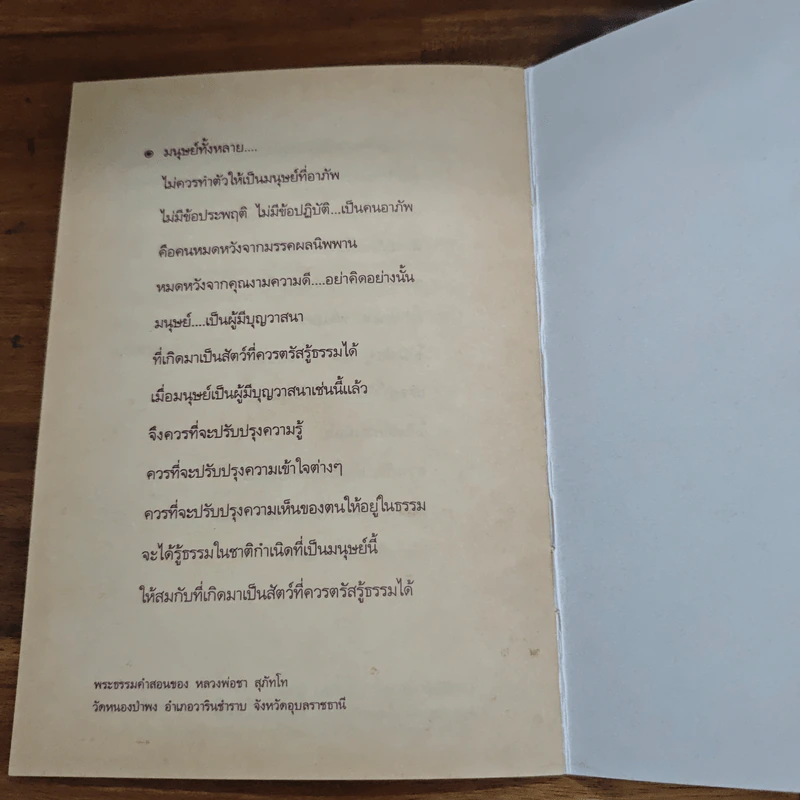 ๏ มนุษย์ทั้งหลาย....
ไม่ควรทำตัวให้เป็นมนุษย์ที่อาภัพ
ไม่มีข้อประพฤติ ไม่มีข้อปฏิบัติ...เป็นคนอาภัพ
คือคนหมดหวังจากมรรคผลนิพพาน
หมดหวังจากคุณงามความดี....อย่าคิดอย่างนั้น
มนุษย์....เป็นผู้มีบุญวาสนา
ที่เกิดมาเป็นสัตว์ที่ควรตรัสรู้ธรรมได้
เมื่อมนุษย์เป็นผู้มีบุญวาสนาเช่นนี้แล้ว
จึงควรที่จะปรับปรุงความรู้
ควรที่จะปรับปรุงความเข้าใจต่างๆ
ควรที่จะปรับปรุงความเห็นของตนให้อยู่ในธรรม
จะได้รู้ธรรมในชาติกำเนิดที่เป็นมนุษย์นี้
ให้สมกับที่เกิดมาเป็นสัตว์ที่ควรตรัสรู้ธรรมได้
พระธรรมคำสอนของ หลวงพ่อชา สุภัทโท
วัดหนองป่าพง อำเภอวารินชำราบ จังหวัดอุบลราชธานี